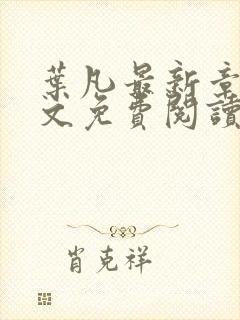 葉凡最新章
文免費閱讀
肖克祥